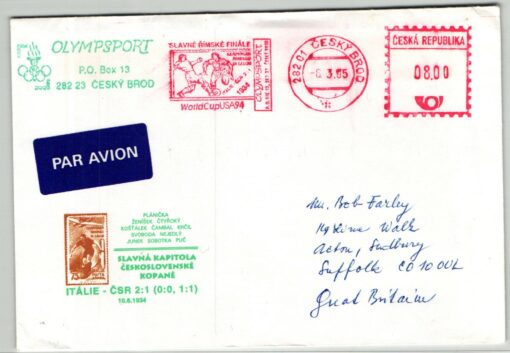 OLYMPSPORT
P.O. Box 13
282 23 ČESKÝ BROD
SLAVNÉ ŘÍMSKÉ FINÁLE
1934
WorldCupUSA94
OLYMPSPORT
282 01 ČESKÝ BROD
3.95
ČESKÁ REPUBLIKA
08.00
PAR AVION
PLÁNIČKA
ŽENÍŠEK ČTYŘOKÝ
KOŠŤÁLEK ČAMBAL KRČIL
SVOBODA NEJEDLÝ
JUNEK SOBOTKA PUČ
SLAVNÁ KAPITOLA
ČESKOSLOVENSKÉ
KOPANÉ
ITÁLIE - ČSR 2:1 (0:0, 1:1)
10.6.1934
75
Mr. Bob Farley
Walk
Acton, Sudbury
Suffolk CO10 0UL
Great Britain